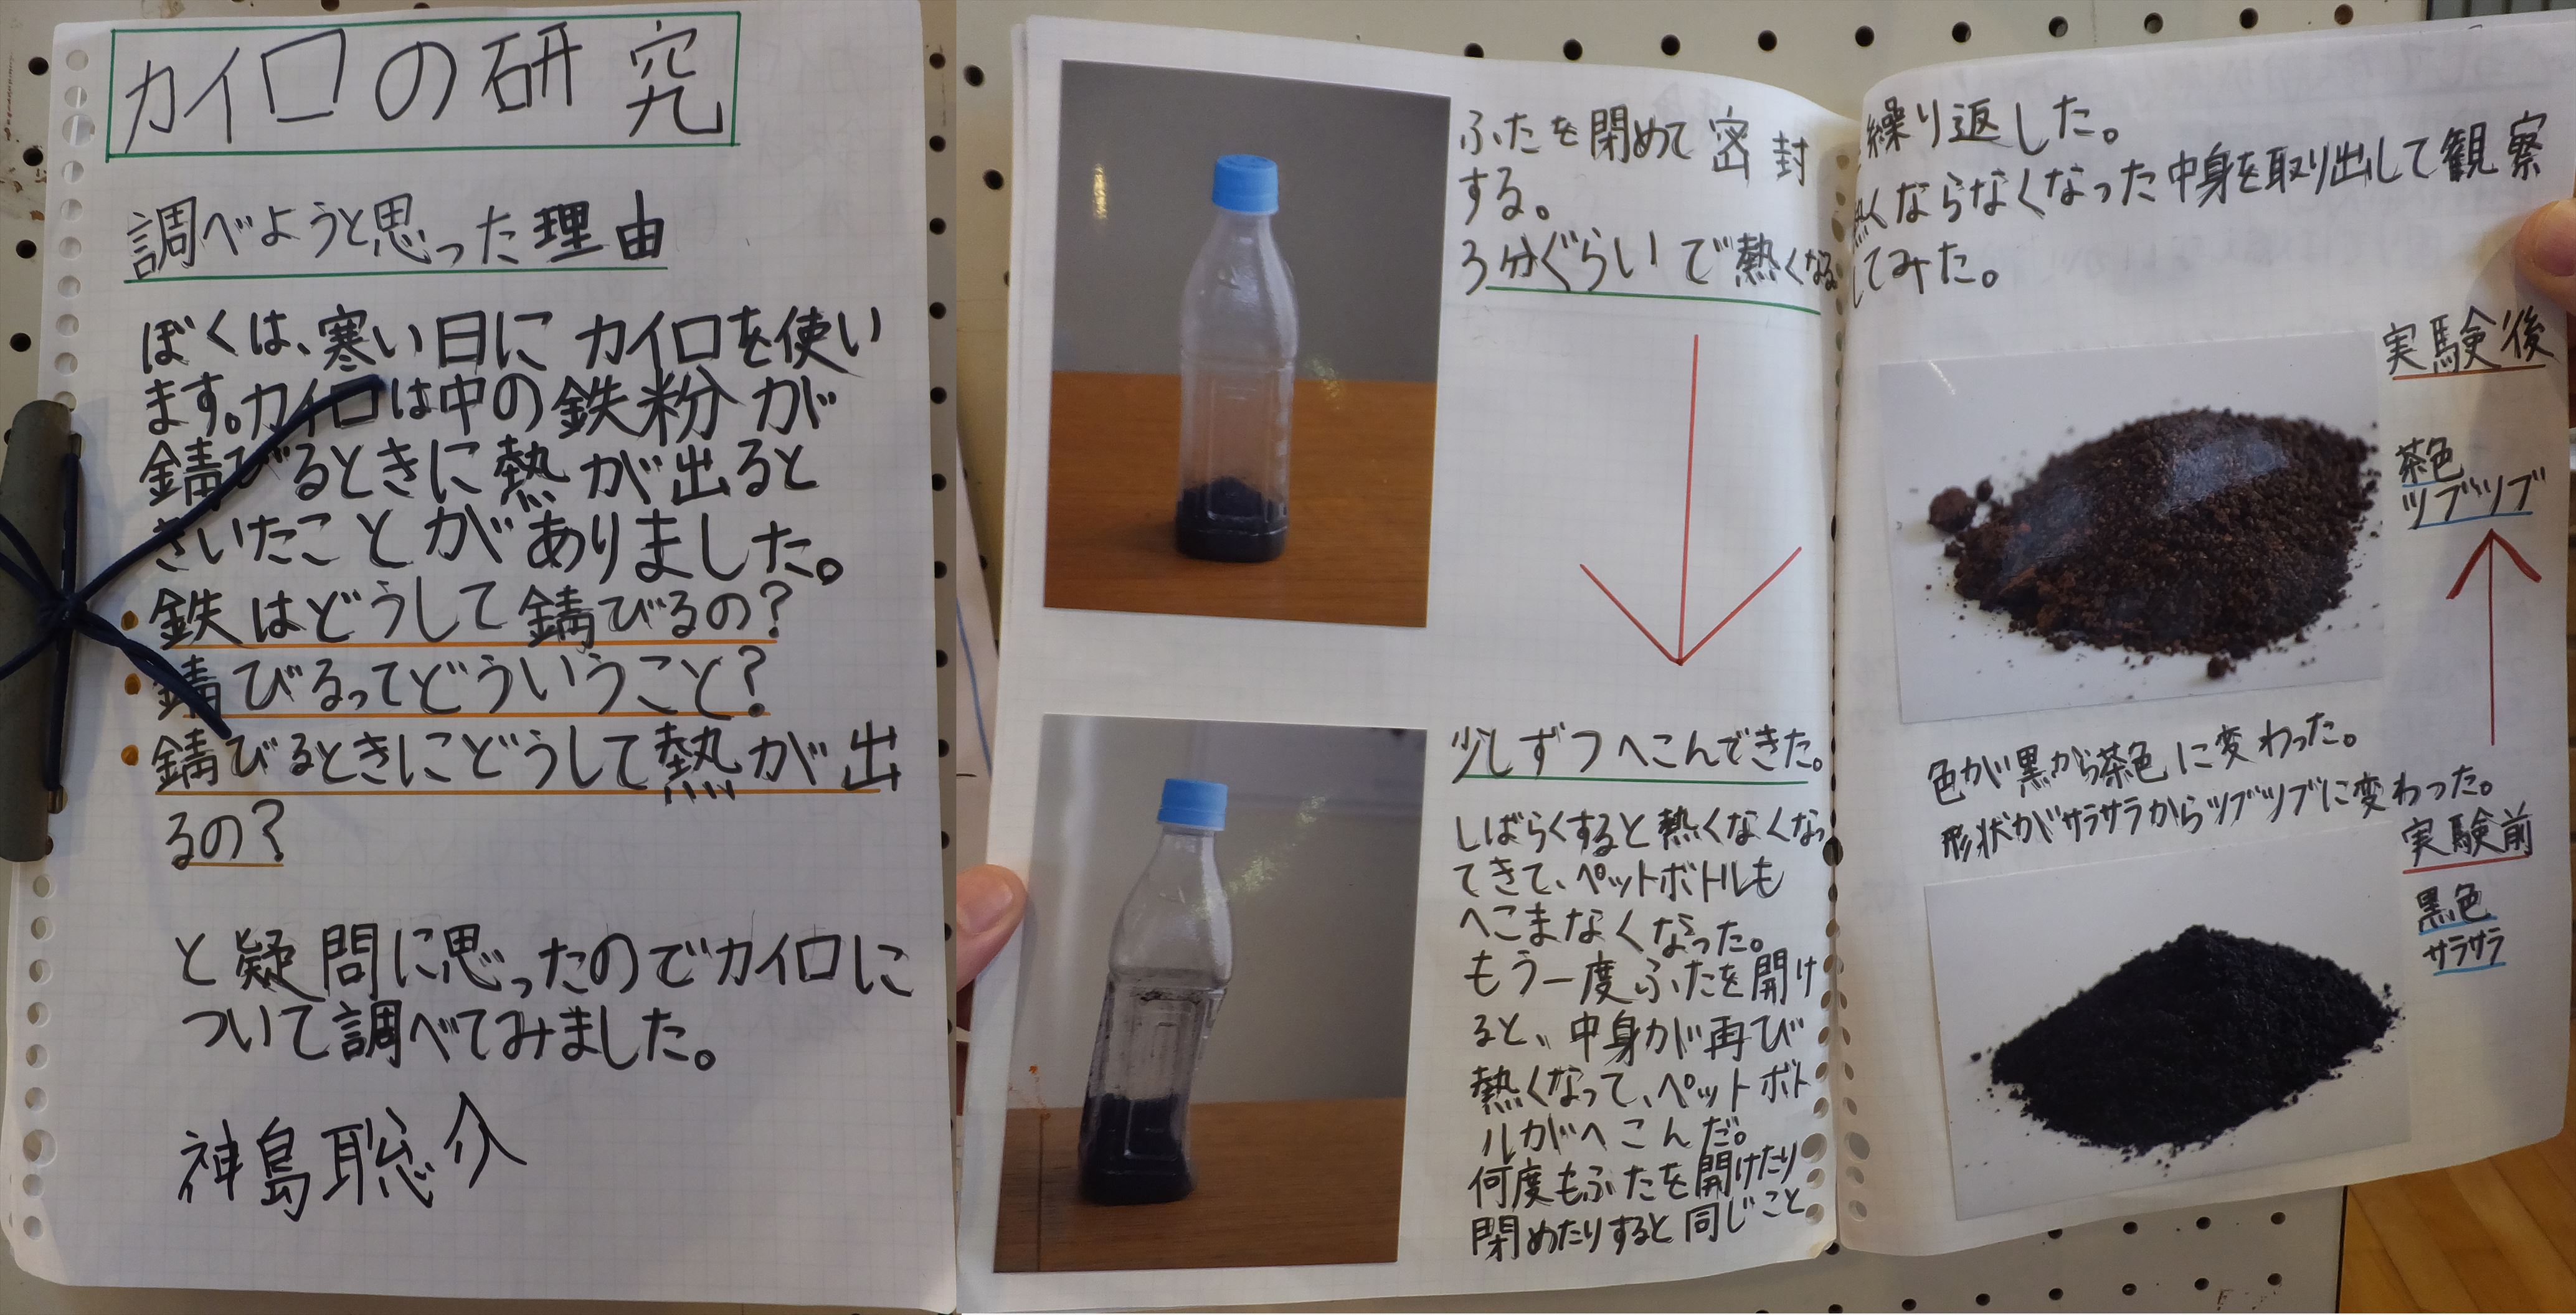 カイロの研究
調べようと思った理由
ぼくは、寒い日にカイロを使い
ます。カイロは中の鉄粉が
錆びるときに熱が出ると
きいたことがありました。
・鉄はどうして錆びるの?
・錆びるってどういうこと?
・錆びるときにどうして熱が出
るの?
と疑問に思ったのでカイロに
ついて調べてみました。
神島聡介
ふたを閉めて密封
する。
3分ぐらいで熱くなる。
少しずつへこんできた。
しばらくすると熱くなくなっ
てきて、ペットボトルも
へこまなくなった。
もう一度ふたを開け
ると、中身が再び
熱くなって、ペットボト
ルがへこんだ。
何度もふたを開けたり
閉めたりすると同じこと
繰り返した。
熱くならなくなった中身を取り出して観察
してみた。
実験後
茶色
ツブツブ
色が黒から茶色に変わった。
形状がサラサラからツブツブに変わった。
実験前
黒色
サラサラ